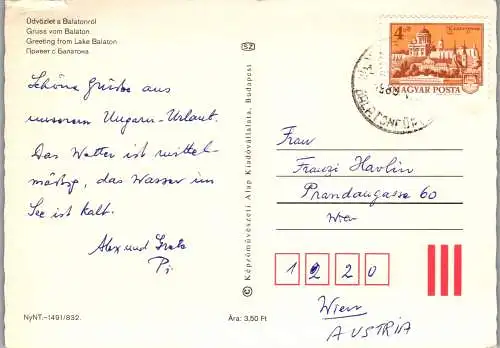 Üdvözlet a Balatonról
Gruss vom Balaton
Greeting from Lake Balaton
Привет с Балатона
Schöne Grüße aus
unserem Ungarn-Urlaub.
Das Wetter ist mittel-
mäßig, das Wasser im
See ist kalt.
Alex und Greta
Pi.
NyNT.–1491/832.
Ára: 3,50 Ft
SZ
© Képzőművészeti Alap Kiadóvállalata, Budapest
4 Ft
Esztergom
MAGYAR POSTA
BALATONFÜRED
Frau
Franzi Havlin
Prandaugasse 60
Wien
1220
Wien
AUSTRIA